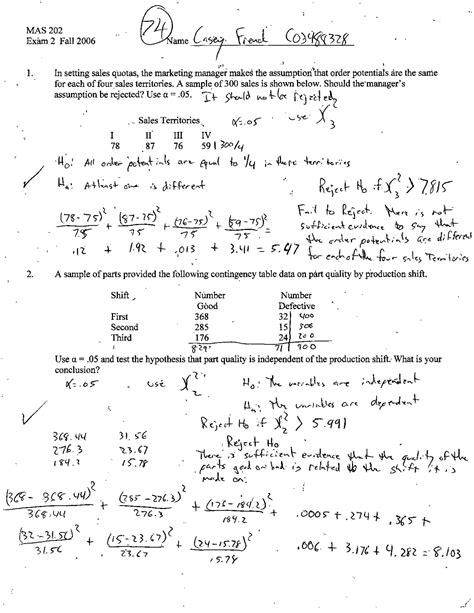 MAS 202
Exam 2 Fall 2006
74
Name Casey Friend C03488328
1. In setting sales quotas, the marketing manager makes the assumption that order potentials are the same
for each of four sales territories. A sample of 300 sales is shown below. Should the manager's
assumption be rejected? Use α = .05. It should not be rejected
Sales Territories α=.05 use X²₃
I II III IV
78 87 76 59 | 300/4
H₀: All order potentials are equal to 1/4 in these territories
Hₐ: At least one is different
Reject H₀ if X²₃ > 7.815
(78-75)²/75 + (87-75)²/75 + (76-75)²/75 + (59-75)²/75
.12 + 1.92 + .013 + 3.41 = 5.47
Fail to Reject. There is not
sufficient evidence to say that
the order potentials are different
for each of the four sales Territories
2. A sample of parts provided the following contingency table data on part quality by production shift.
Shift Number Number
Good Defective
First 368 32 400
Second 285 15 300
Third 176 24 200
829 71 900
Use α = .05 and test the hypothesis that part quality is independent of the production shift. What is your
conclusion?
α=.05 use X²₂ H₀: The variables are independent
Hₐ: The variables are dependent
Reject H₀ if X²₂ > 5.991
Reject H₀
368.44 31.56
276.3 23.67
184.2 15.78
There is sufficient evidence that the quality of the
parts good or bad is related to the shift it is
made on.
(368-368.44)²/368.44 + (285-276.3)²/276.3 + (176-184.2)²/184.2 + .0005 + .274 + .365 +
(32-31.56)²/31.56 + (15-23.67)²/23.67 + (24-15.78)²/15.78 .006 + 3.176 + 4.282 = 8.103